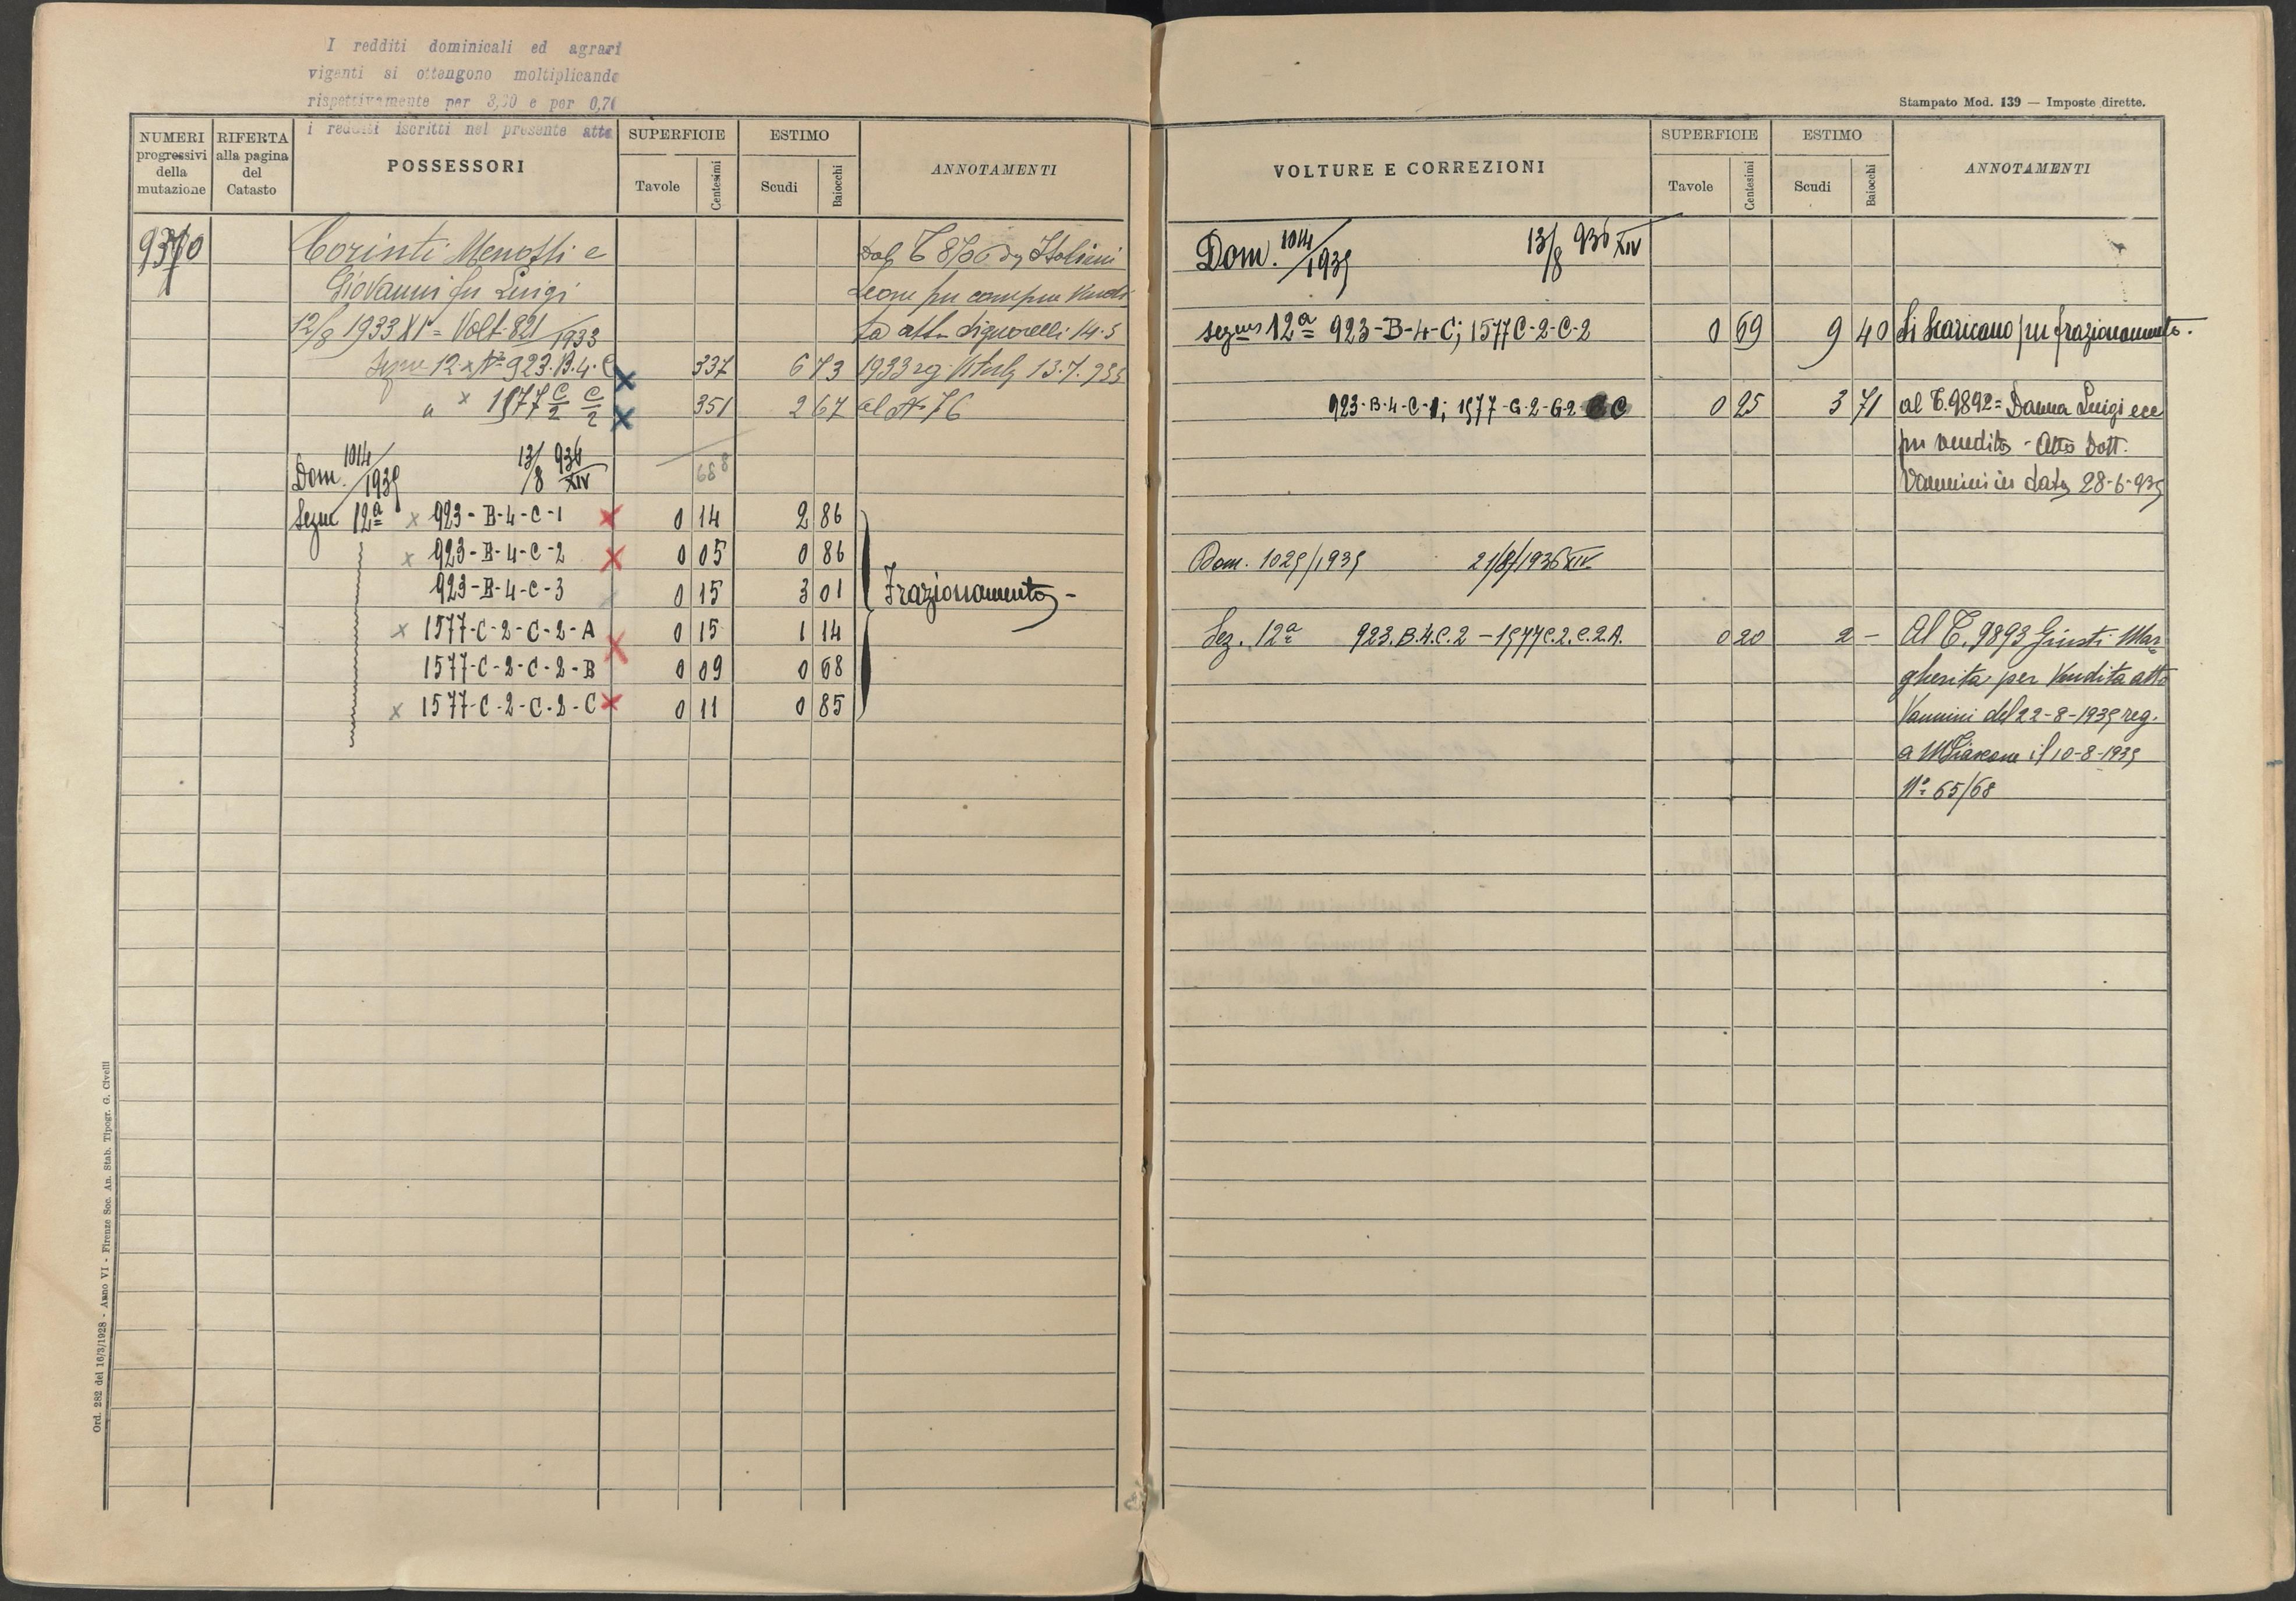 I redditi dominicali ed agrari
viganti si ottengono moltiplicando
rispettivamente per 3,30 e per 0,70
i redditi iscritti nel presente atto
NUMERI progressivi della mutazione
RIFERTA alla pagina del Catasto
POSSESSORI
SUPERFICIE
Tavole
Centesimi
ESTIMO
Scudi
Baiocchi
ANNOTAMENTI
9370
Corinti Menotti e
Giovanni fu Luigi
12/8 1933 XI = Volt. 821/1933
12 x N° 923.B.4.C 337 6 73
" x 1577 C/2 C/2 351 2 67
Dal T 8700 Italiani
Leone per compra vendi
ta atto Signorelli 14.5
1933 reg. Viterbo 13.7.933
al N° 76
688
Dom. 1014/1935 13/8 936 XIV
Sezne 12ª x 923-B-4-C-1 0 14 2 86
x 923-B-4-C-2 0 05 0 86
923-B-4-C-3 0 15 3 01
Frazionamento -
x 1577-C-2-C-2-A 0 15 1 14
1577-C-2-C-2-B 0 09 0 68
x 1577-C-2-C-2-C 0 11 0 85
Ord. 282 del 16/3/1928 - Anno VI - Firenze Soc. An. Stab. Tipogr. G. Civelli
Stampato Mod. 139 — Imposte dirette.
VOLTURE E CORREZIONI
SUPERFICIE
Tavole
Centesimi
ESTIMO
Scudi
Baiocchi
ANNOTAMENTI
Dom. 1014/1935 13/8 936 XIV
sezne 12ª 923-B-4-C; 1577 C-2-C-2 0 69 9 40 Si scaricano per frazionamento.
923-B-4-C-1; 1577-C-2-C-2 C 0 25 3 71 al T. 9892 = Danna Luigi ecc
per vendita - Atto Dott.
Vannini in data 28-6-935
Dom. 1025/1935 21/8/1936 XIV
Sez. 12ª 923.B.4.C.2 - 1577 C.2.C.2.A. 0 20 2 - Al T. 9893 Giusti Mar
gherita per Vendita atto
Vannini del 22-8-1935 reg.
a Mfiascone il 10-8-1935
N° 65/68